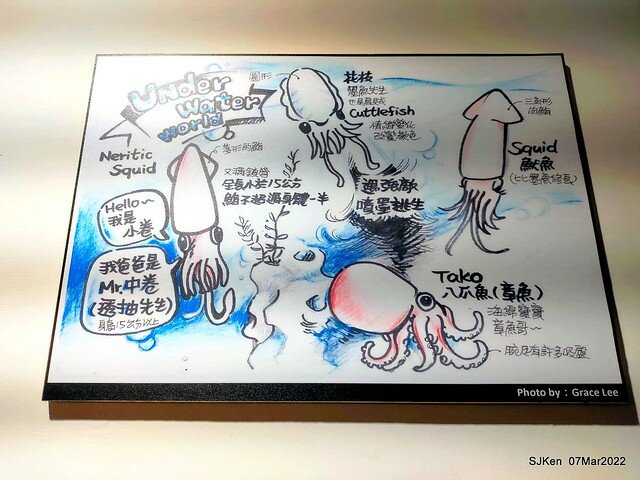 Under
Water
World
圓形
花枝
墨魚先生
Cuttlefish
情緒變化
改變顏色
三角形
肉鰭
Squid
魷魚
(比墨魚修長)
Neritic
Squid
菱形肉鰭
又稱鎖管
全長小於15公分
鰭不超過身體一半
遇強敵
噴墨逃生
Hello~
我是
小卷
我爸爸是
Mr.中卷
(透抽先生)
身長15公分以上
Tako
八爪魚(章魚)
海綿寶寶
章魚哥~
腕足有許多吸盤
Photo by：Grace Lee
SJKen 07Mar2022